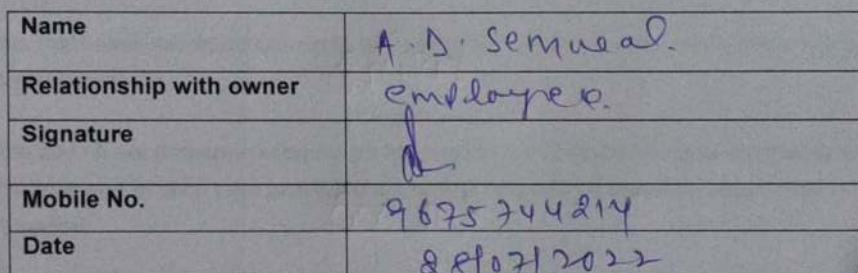 Name A D. Semueal.
Relationship with owner employee.
Signature
Mobile No. 9675744214
Date /07/2022